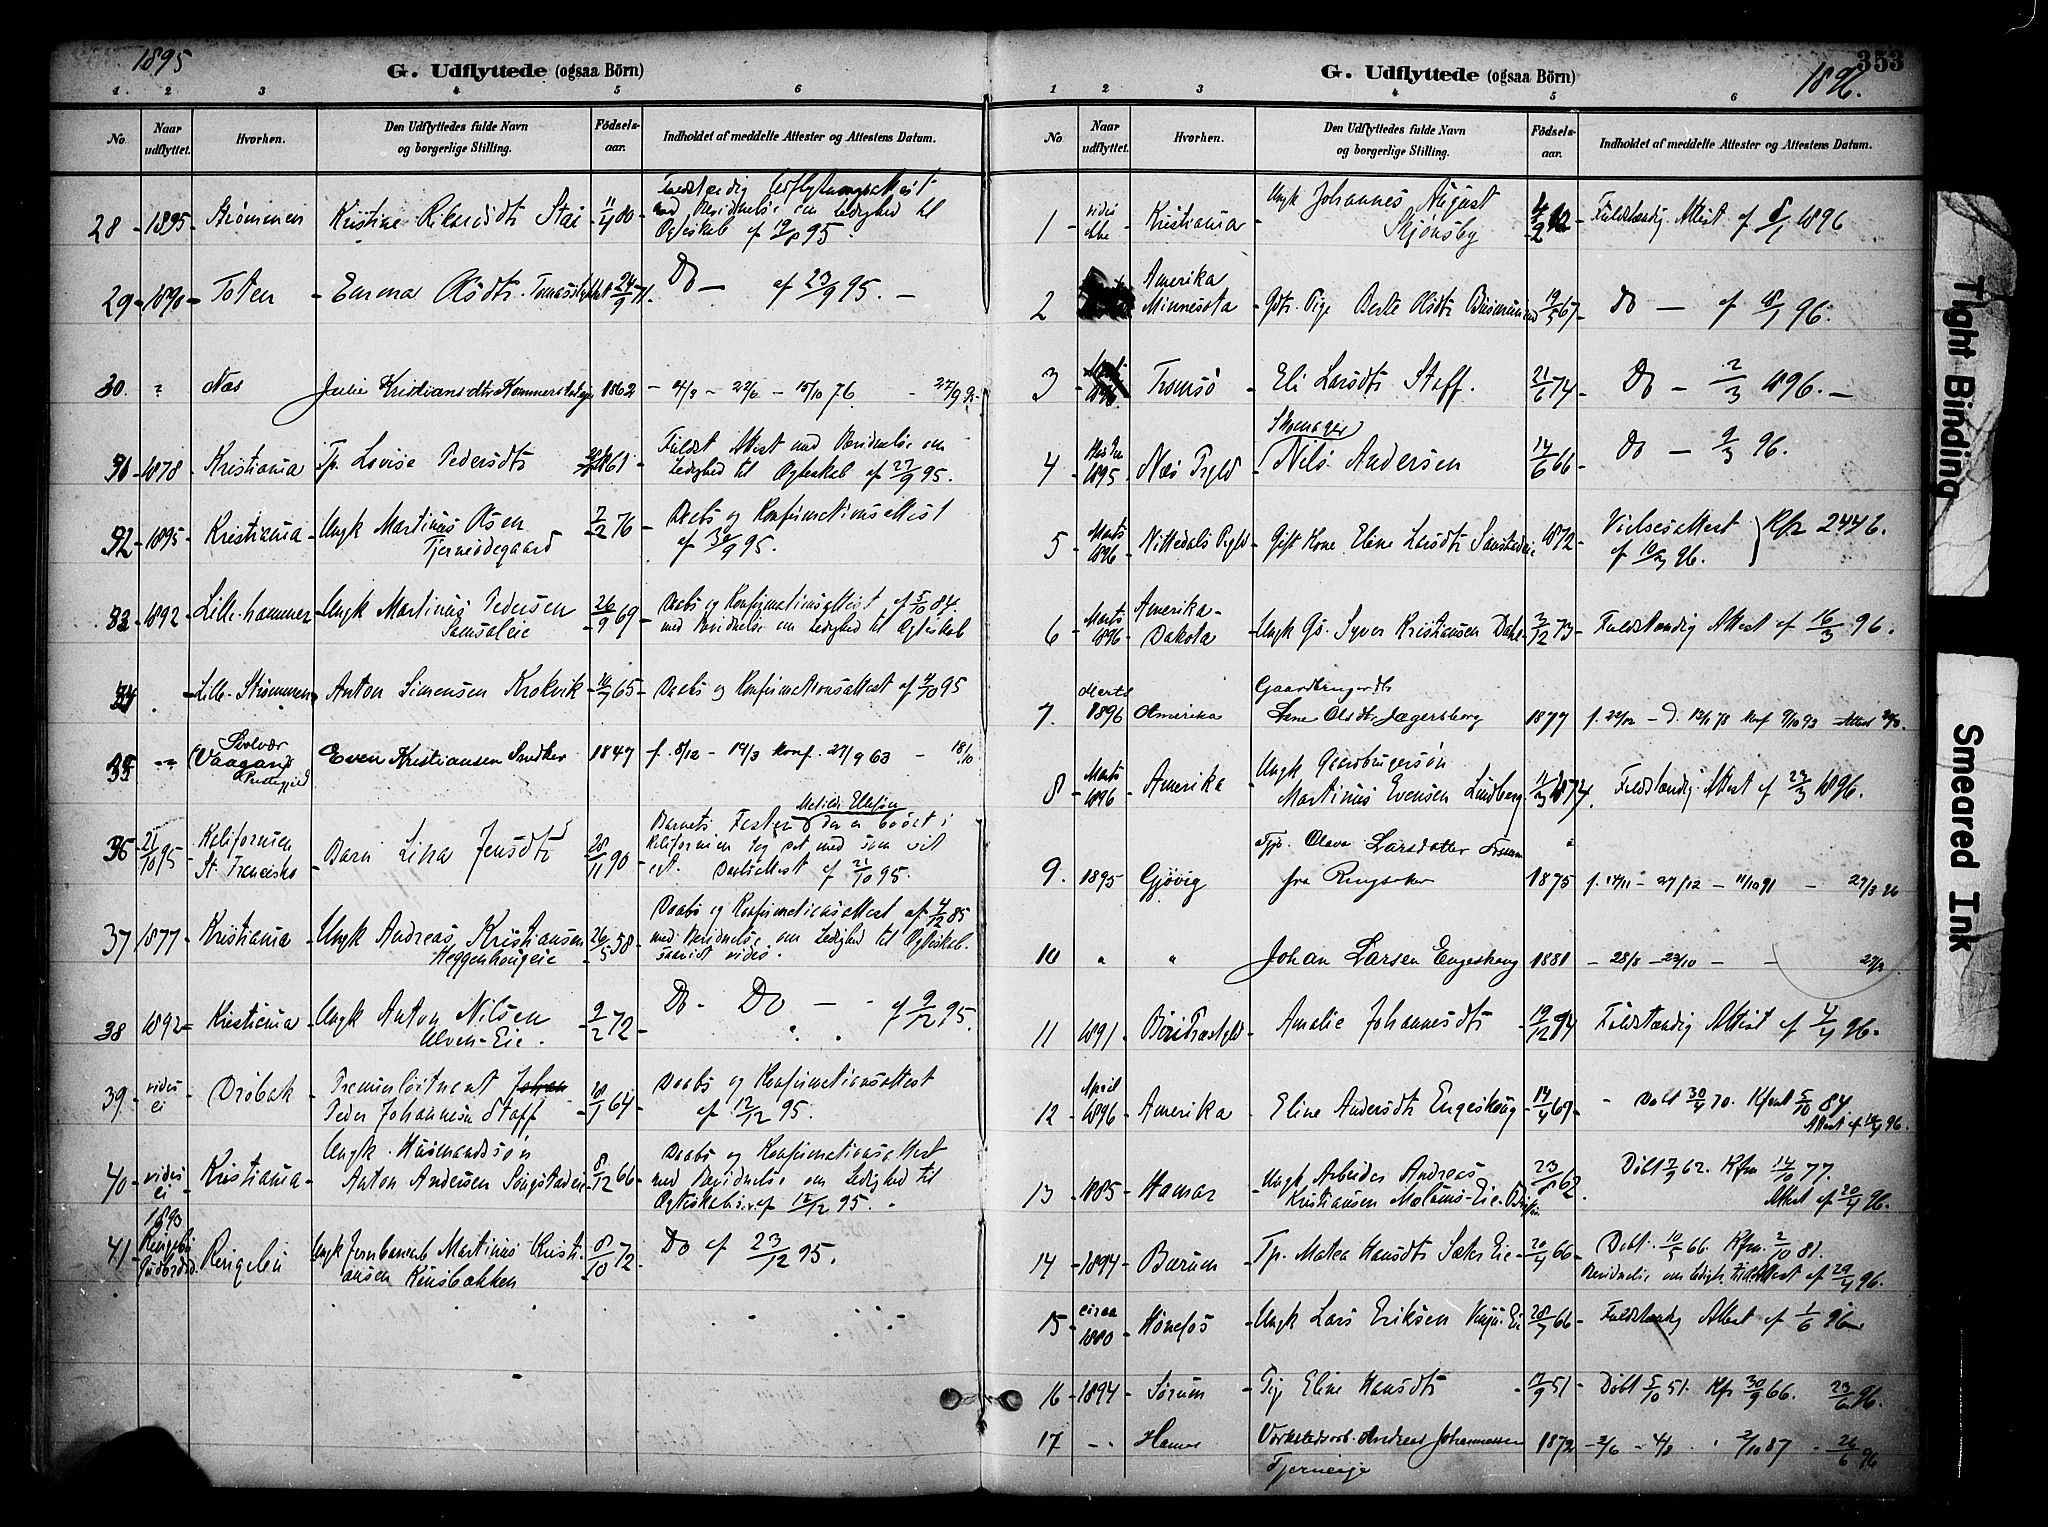 1895
G. Udflyttede (ogsaa Börn)
1. 2 3 4 5 6
No. Naar udflyttet. Hvorhen. Den Udflyttedes fulde Navn og borgerlige Stilling. Födsels-aar. Indholdet af meddelte Attester og Attestens Datum.
28 - 1895 - Strömmen Kristine Stai 11/4 80 Fuldstændig Udflytningsattest
med Bevidnelse om Ledighed til
Ægteskab af 95.
29 - 1890 - Toten - Emma Olsdtr. 24/9 71. Do — af 23/9 95. —
30. " Næs Julie Kristiansdtr 1862 - 4/3 - 22/6 - 15/10 76. - 27/9 95
31 - 1878 - Kristiania Tp. Lovise Pedersdtr 61 - Fuldst Attest med Bevidnelse om
Ledighed til Ægteskab af 27/9 95.
32 - 1895 - Kristiania - Ungk Martinus Olsen
Tjernsødegaard 7/2 76 - Daabs og Konfirmationsattest
af 30/9 95.
33 - 1892 - Lille-hammer - Ungk Martinus Pedersen
26/9 69 - Daabs og Konfirmationsattest af 5/10 84.
med Bevidnelse om Ledighed til Ægteskab
34 . - Lille-Strömmen Anton Simensen Krokvik 65 - Daabs og Konfirmationsattest af 4/10 95
35 Svolvær
(Vaagans
Prestegjeld Even Kristiansen 1847 f. 8/12 - 19/3 konf. 27/9 63 - 18/10
36 21/10 95 Kalifornien
St. Francisko - Barn Lina Jensdtr 28/11 90 - Barnets Faster der er bosat i
Kalifornien tog det med som sit
eget. Daabsattest af 21/10 95.
37 1877 - Kristiania - Ungk Andreas Kristiansen
Heggenhougeie 26/5 58 Daabs og Konfirmationsattest af 4/12 85
med Bevidnelse om Ledighed til Ægteskab.
saavidt vides.
38 - 1892 - Kristiania - Ungk Anton Nilsen
Ulven-Eie. 2/2 72 - Do - Do — - af 9/12 95.
39 - vides
ei - Dröbak - Premierlöitnant Johan
Peder Johannesen Staff - 64 - Daabs og Konfirmationsattest
af 12/12 95.
40 - vides
ei Kristiania - Ungk. Husmandssön
Anton Andersen 8/12 66 Daabs og Konfirmationsattest
med Bevidnelse om Ledighed til
Ægteskab af 12/12 95.
41 1893
Ringebu
Gudbrdsd. Ringebu Ungk Jernbanearb Martinus Kristi-
ansen Kinsbakken 8/10 72 - Do af 23/12 95.
353
1896.
G. Udflyttede (ogsaa Börn)
1 2 3 4 5 6
No Naar udflyttet. Hvorhen. Den Udflyttedes fulde Navn og borgerlige Stilling. Födsels-aar. Indholdet af meddelte Attester og Attestens Datum.
1 - vides
ikke - Kristiania - Ungk Johannes August
Skjönsby Fuldstændig Attest af 8/1 1896
2 Amerika
Minnesota - Gdbr. Pige Berte Olsdtr 19/5 67 - Do — af 18/1 96.
3 Tromsö - Eli Larsdtr Staff. 21/6 74 - Do - 2/3 1896. —
4 - 1895 - Næs Prgld - Skomager
Nils Andersen 14/6 66 Do - 9/3 96.
5 - Marts
1896 - Nittedals Prgld - Gift Kone Eline Larsdtr 1872 - Vielsesattest
af 10/3 96. Kfr 2446.
6 - Marts
1896 - Amerika-
Dakota - Ungk Gs. Syver Kristiansen Dahl 3/12 73 - Fuldstændig Attest af 16/3 96.
7. Marts
1896 Amerika Gaardbrugerdtr
Lene Olsdtr Jægersborg 1877 f. 22/12 - D. 13/1 78 Konf 9/10 93 - Attest 20/3
8 - Marts
1896 - Amerika - Ungk Gaardbrugersön
Martinus Evensen Lundberg 1874. Fuldstændig Attest af 23/3 1896.
9. 1895 Gjövig Tpi. Olava Larsdatter
fra Ringsaker 1875 f. 14/11 - 27/12 - 11/10 91 - 27/3 96
10 " " Johan Larsen Engeshaug 1881 - 28/8 - 23/10 - - 27/3
11 - 1891 - Amalie Johannesdtr - 19/12 74 Fuldstændig Attest af 4/4 96.
12 - April
1896 - Amerika - Eline Andersdtr Engeshaug - 14/4 69 - - Döbt 30/4 70. Kfmt 5/10 84
Attest af 14/4 96.
13 - 1885 - Hamar - Ungk Arbeider Andreas
Kristiansen 23/8 62. Döbt 7/9 62. Kfm 14/10 77.
Attest af 20/4 96.
14 - 1894 - Bærum - Tp. Matea Hansdtr Sæter Eie - 20/4 66 - Döbt. 10/5 66. Kfm. 2/10 81.
Bevidnelse om Ledighed Attest af 29/4 96.
15 - circa
1880 - Hönefos - Ungk Lars Eriksen 28/7 66 - Fuldstændig Attest af 1/6 96
16 - 1894 - Sörum - Pige Eline Hansdtr - 17/9 51 - Döbt 5/10 51. Kfr 30/9 66. 23/6 96.
17 - - Hamar Værkstedsarb. Andreas Johannessen
Tjerneeie 1872 - 2/6 - 4/8 " 2/10 87 - 26/6 96
Tight Binding
Smeared Ink